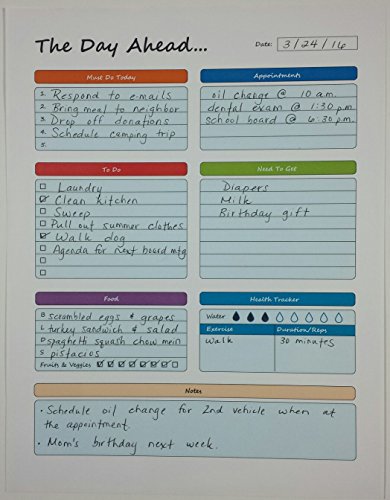 The Day Ahead...
Date: 3/24/16
Must Do Today
1. Respond to e-mails
2. Bring meal to neighbor
3. Drop off donations
4. Schedule camping trip
5.
Appointments
oil change @ 10 a.m.
dental exam @ 1:30 p.m.
school board @ 6:30 p.m.
To Do
Laundry
Clean kitchen
Sweep
Pull out summer clothes
Walk dog
Agenda for next board mtg
Need To Get
Diapers
Milk
Birthday gift
Food
B scrambled eggs & grapes
L turkey sandwich & salad
D spaghetti squash chow mein
S pistacios
Fruits & Veggies
Health Tracker
Water
Exercise Duration/Reps
Walk 30 minutes
Notes
· Schedule oil change for 2nd vehicle when at
the appointment.
· Mom's birthday next week.